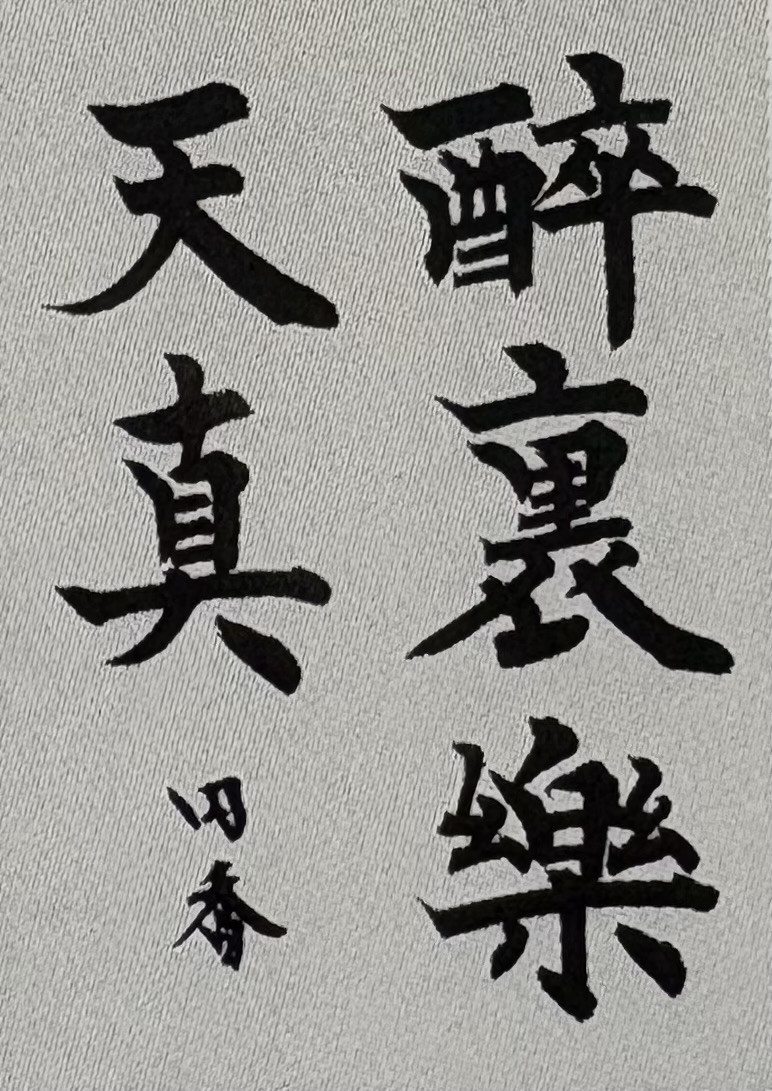 醉裏樂
天真 田香